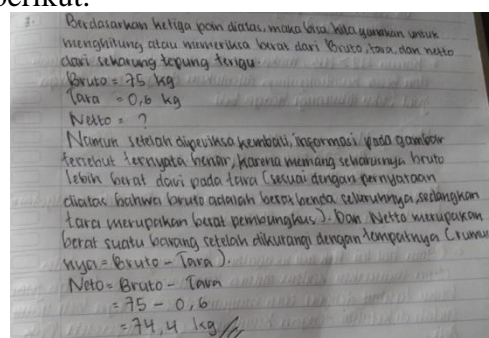 berikut.
3. Berdasarkan ketiga poin diatas, maka bisa kita gunakan untuk
menghitung atau memeriksa berat dari Bruto, tara, dan netto
dari sekarung tepung terigu.
Bruto = 75 kg
Tara = 0,6 kg
Netto = ?
Namun setelah diperiksa kembali, informasi pada gambar
tersebut ternyata benar, karena memang seharusnya bruto
lebih berat dari pada tara (sesuai dengan pernyataan
diatas bahwa bruto adalah berat benda seluruhnya, sedangkan
tara merupakan berat pembungkus). Dan Netto merupakan
berat suatu barang setelah dikurangi dengan tempatnya (rumus
nya = Bruto - Tara).
Neto = Bruto - Tara
= 75 - 0,6
= 74,4 kg //